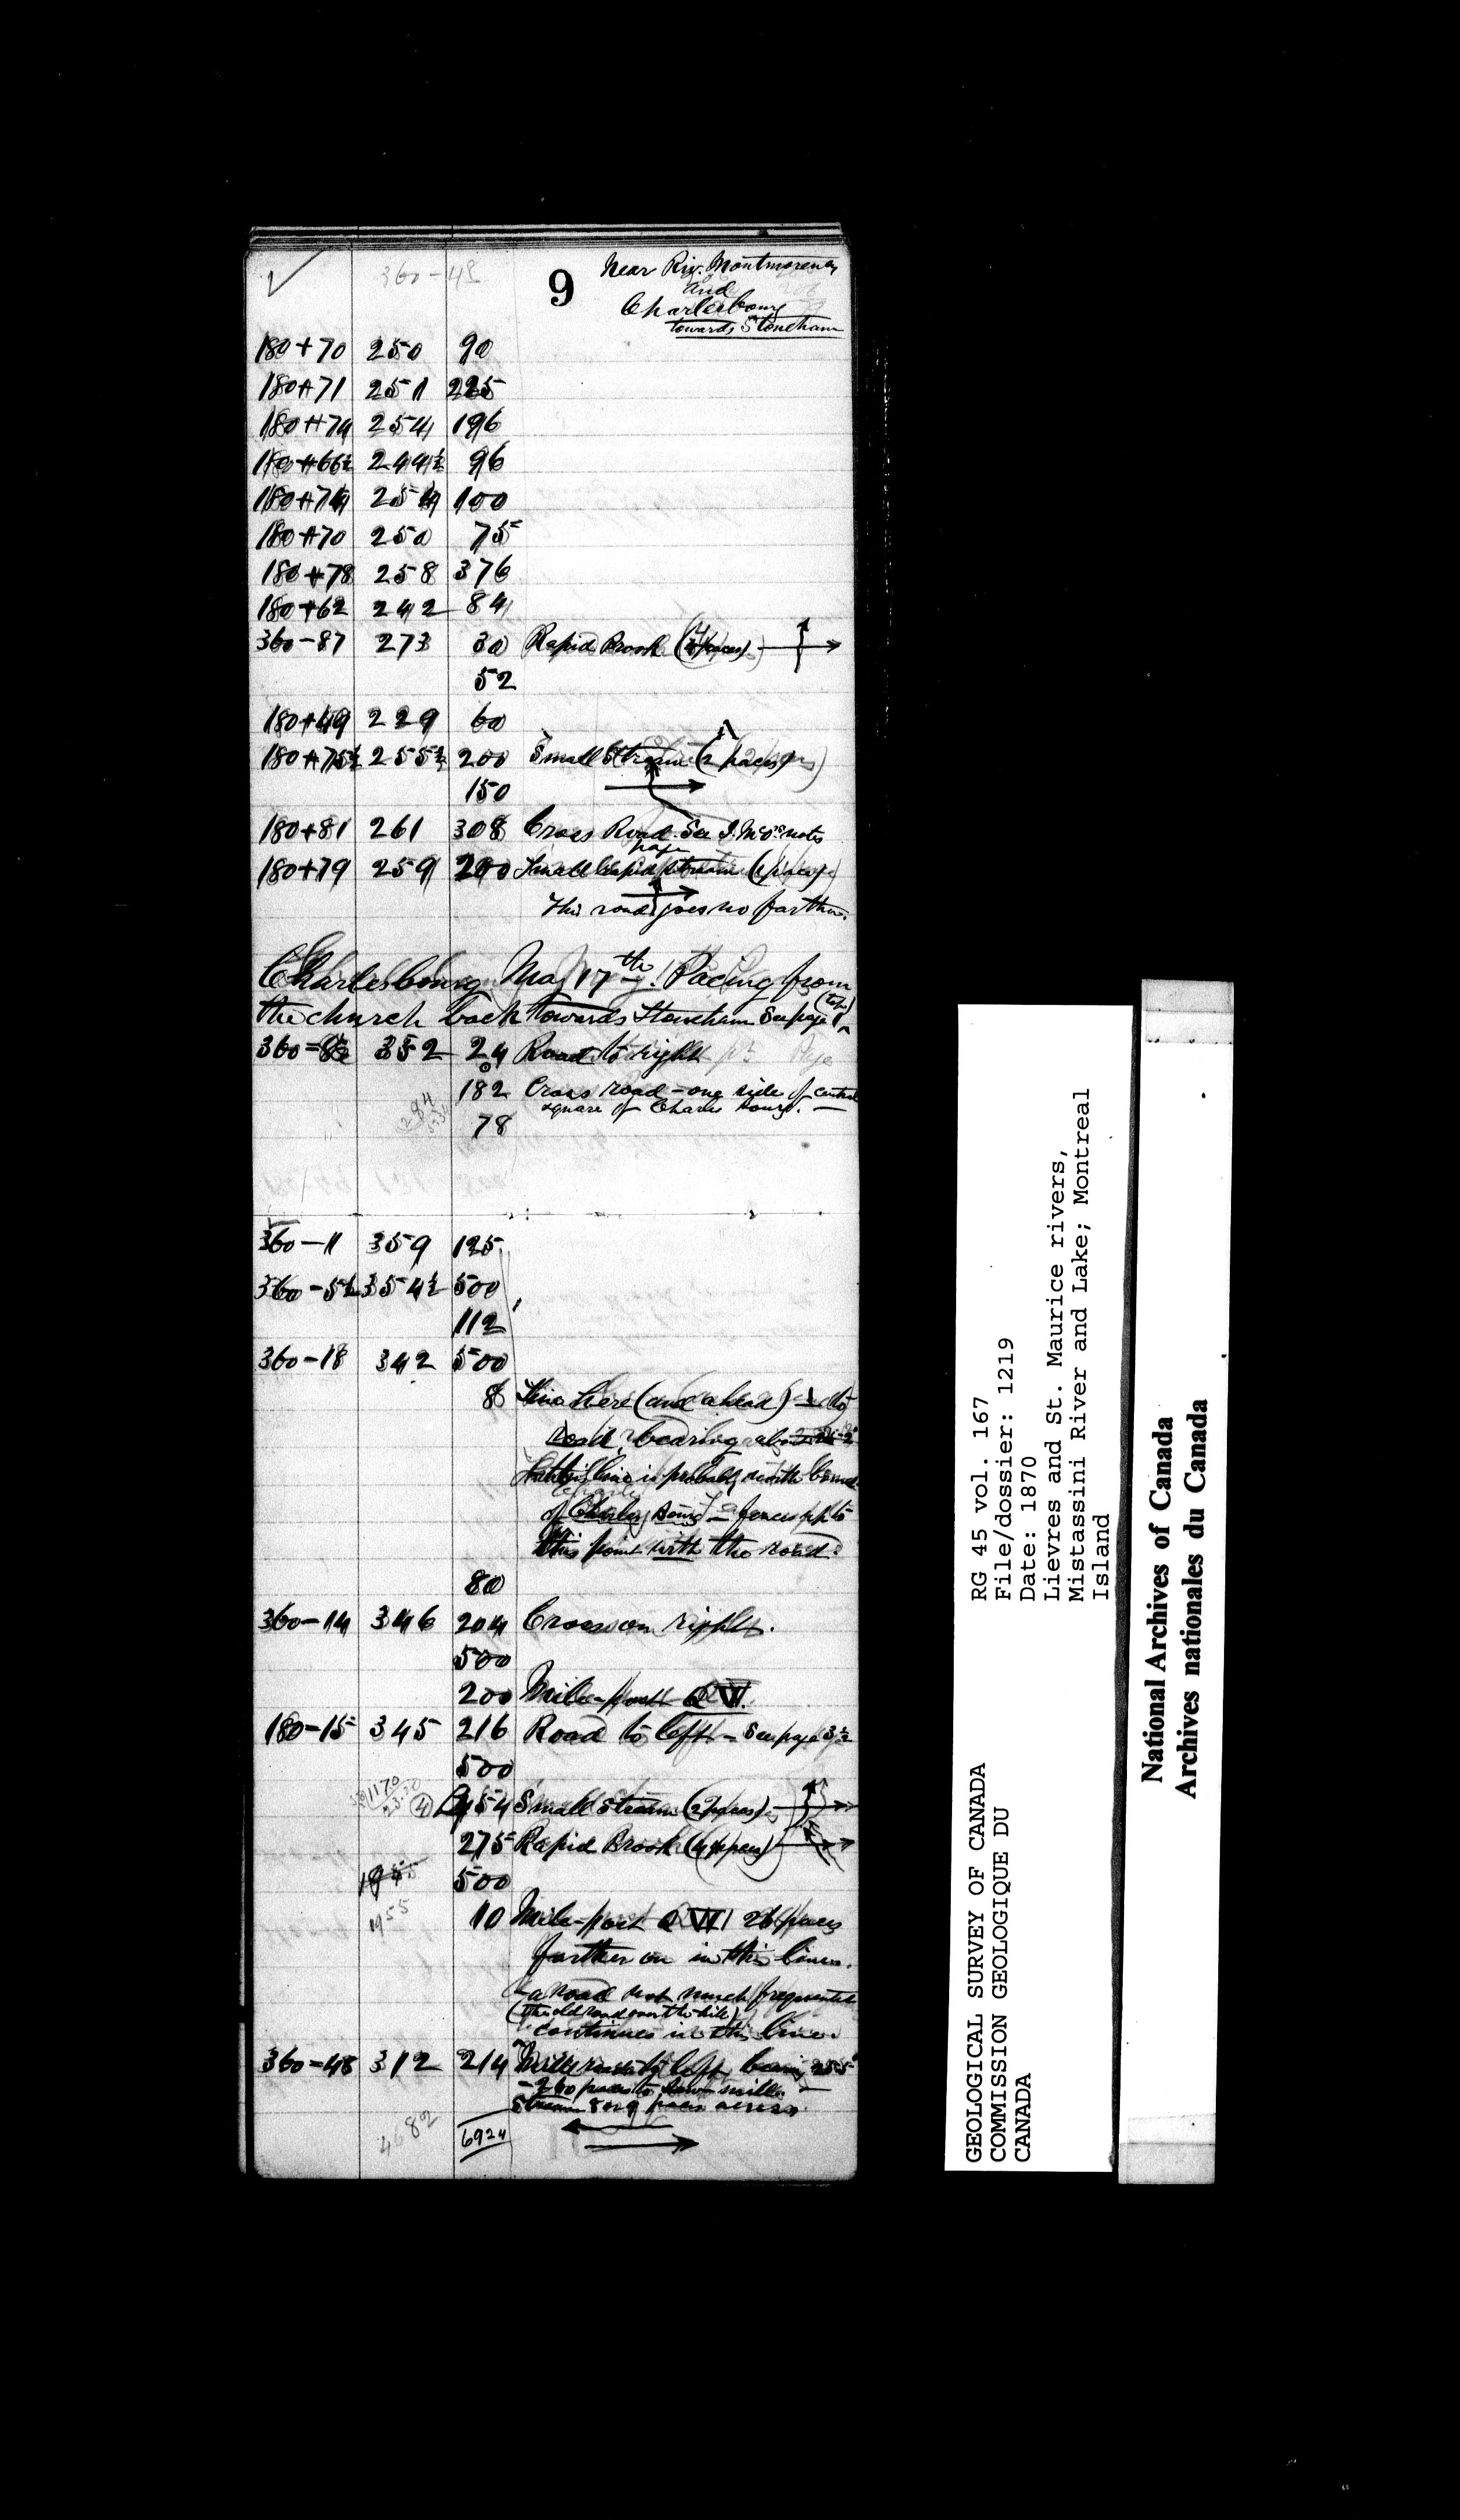 360-48
9
Near Riv. Montmorency
and
Charlesbourg
towards Stoneham
180+70 250 90
180+71 251 225
180+74 254 196
180+66½ 244½ 96
180+74 254 100
180+70 250 75
180+78 258 376
180+62 242 84
360-87 273 30 Rapid Brook (4 paces)
52
180+49 229 60
180+75½ 255½ 200 Small Stream (2 paces)
150
180+81 261 308 Cross Road. See notes
page
180+79 259 200 Small Rapid Stream (1 pace)
This road goes no farther.
Charlesbourg May 17th. Pacing from
the church back towards Stoneham See page 1
360-8 352 24 Road to right
182 Cross road - one side of central
square of Charlesbourg. —
284
78
360-11 359 125
360-5½ 354½ 500
112
360-18 342 500
8 Line here (and ahead) to
road, bearing about
line is probably north
of Charlesbourg - fences up to
this point with the road.
80
360-14 346 204 Cross on right.
500
200 Mile-post V.
180-15 345 216 Road to left - See page 3½
500
1170
4 454 Small Stream (2 paces)
275 Rapid Brook (4 paces)
500
1955
10 Mile-post VI 26 paces
farther on in this line.
- a road not much frequented
(the old road over the hill)
continues in this line.
360-48 312 214 Mill road to left, bearing 255°
- 260 paces to saw mill. —
Stream 8 or 9 paces across
4682
6924
RG 45 vol. 167
File/dossier: 1219
Date: 1870
Lievres and St. Maurice rivers,
Mistassini River and Lake; Montreal
Island
GEOLOGICAL SURVEY OF CANADA
COMMISSION GEOLOGIQUE DU
CANADA
National Archives of Canada
Archives nationales du Canada